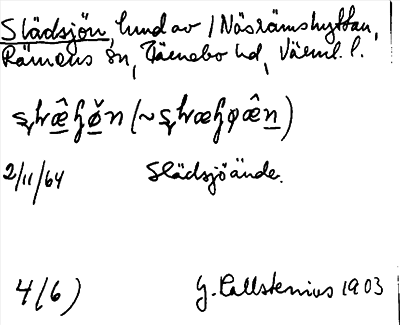 Slädsjön, hund av / Näsrämshyttan,
Rämens sn, Färnebo hd, Värml. l.
2/11/64 Slädsjöände.
4 (6) G. Kallstenius 1903